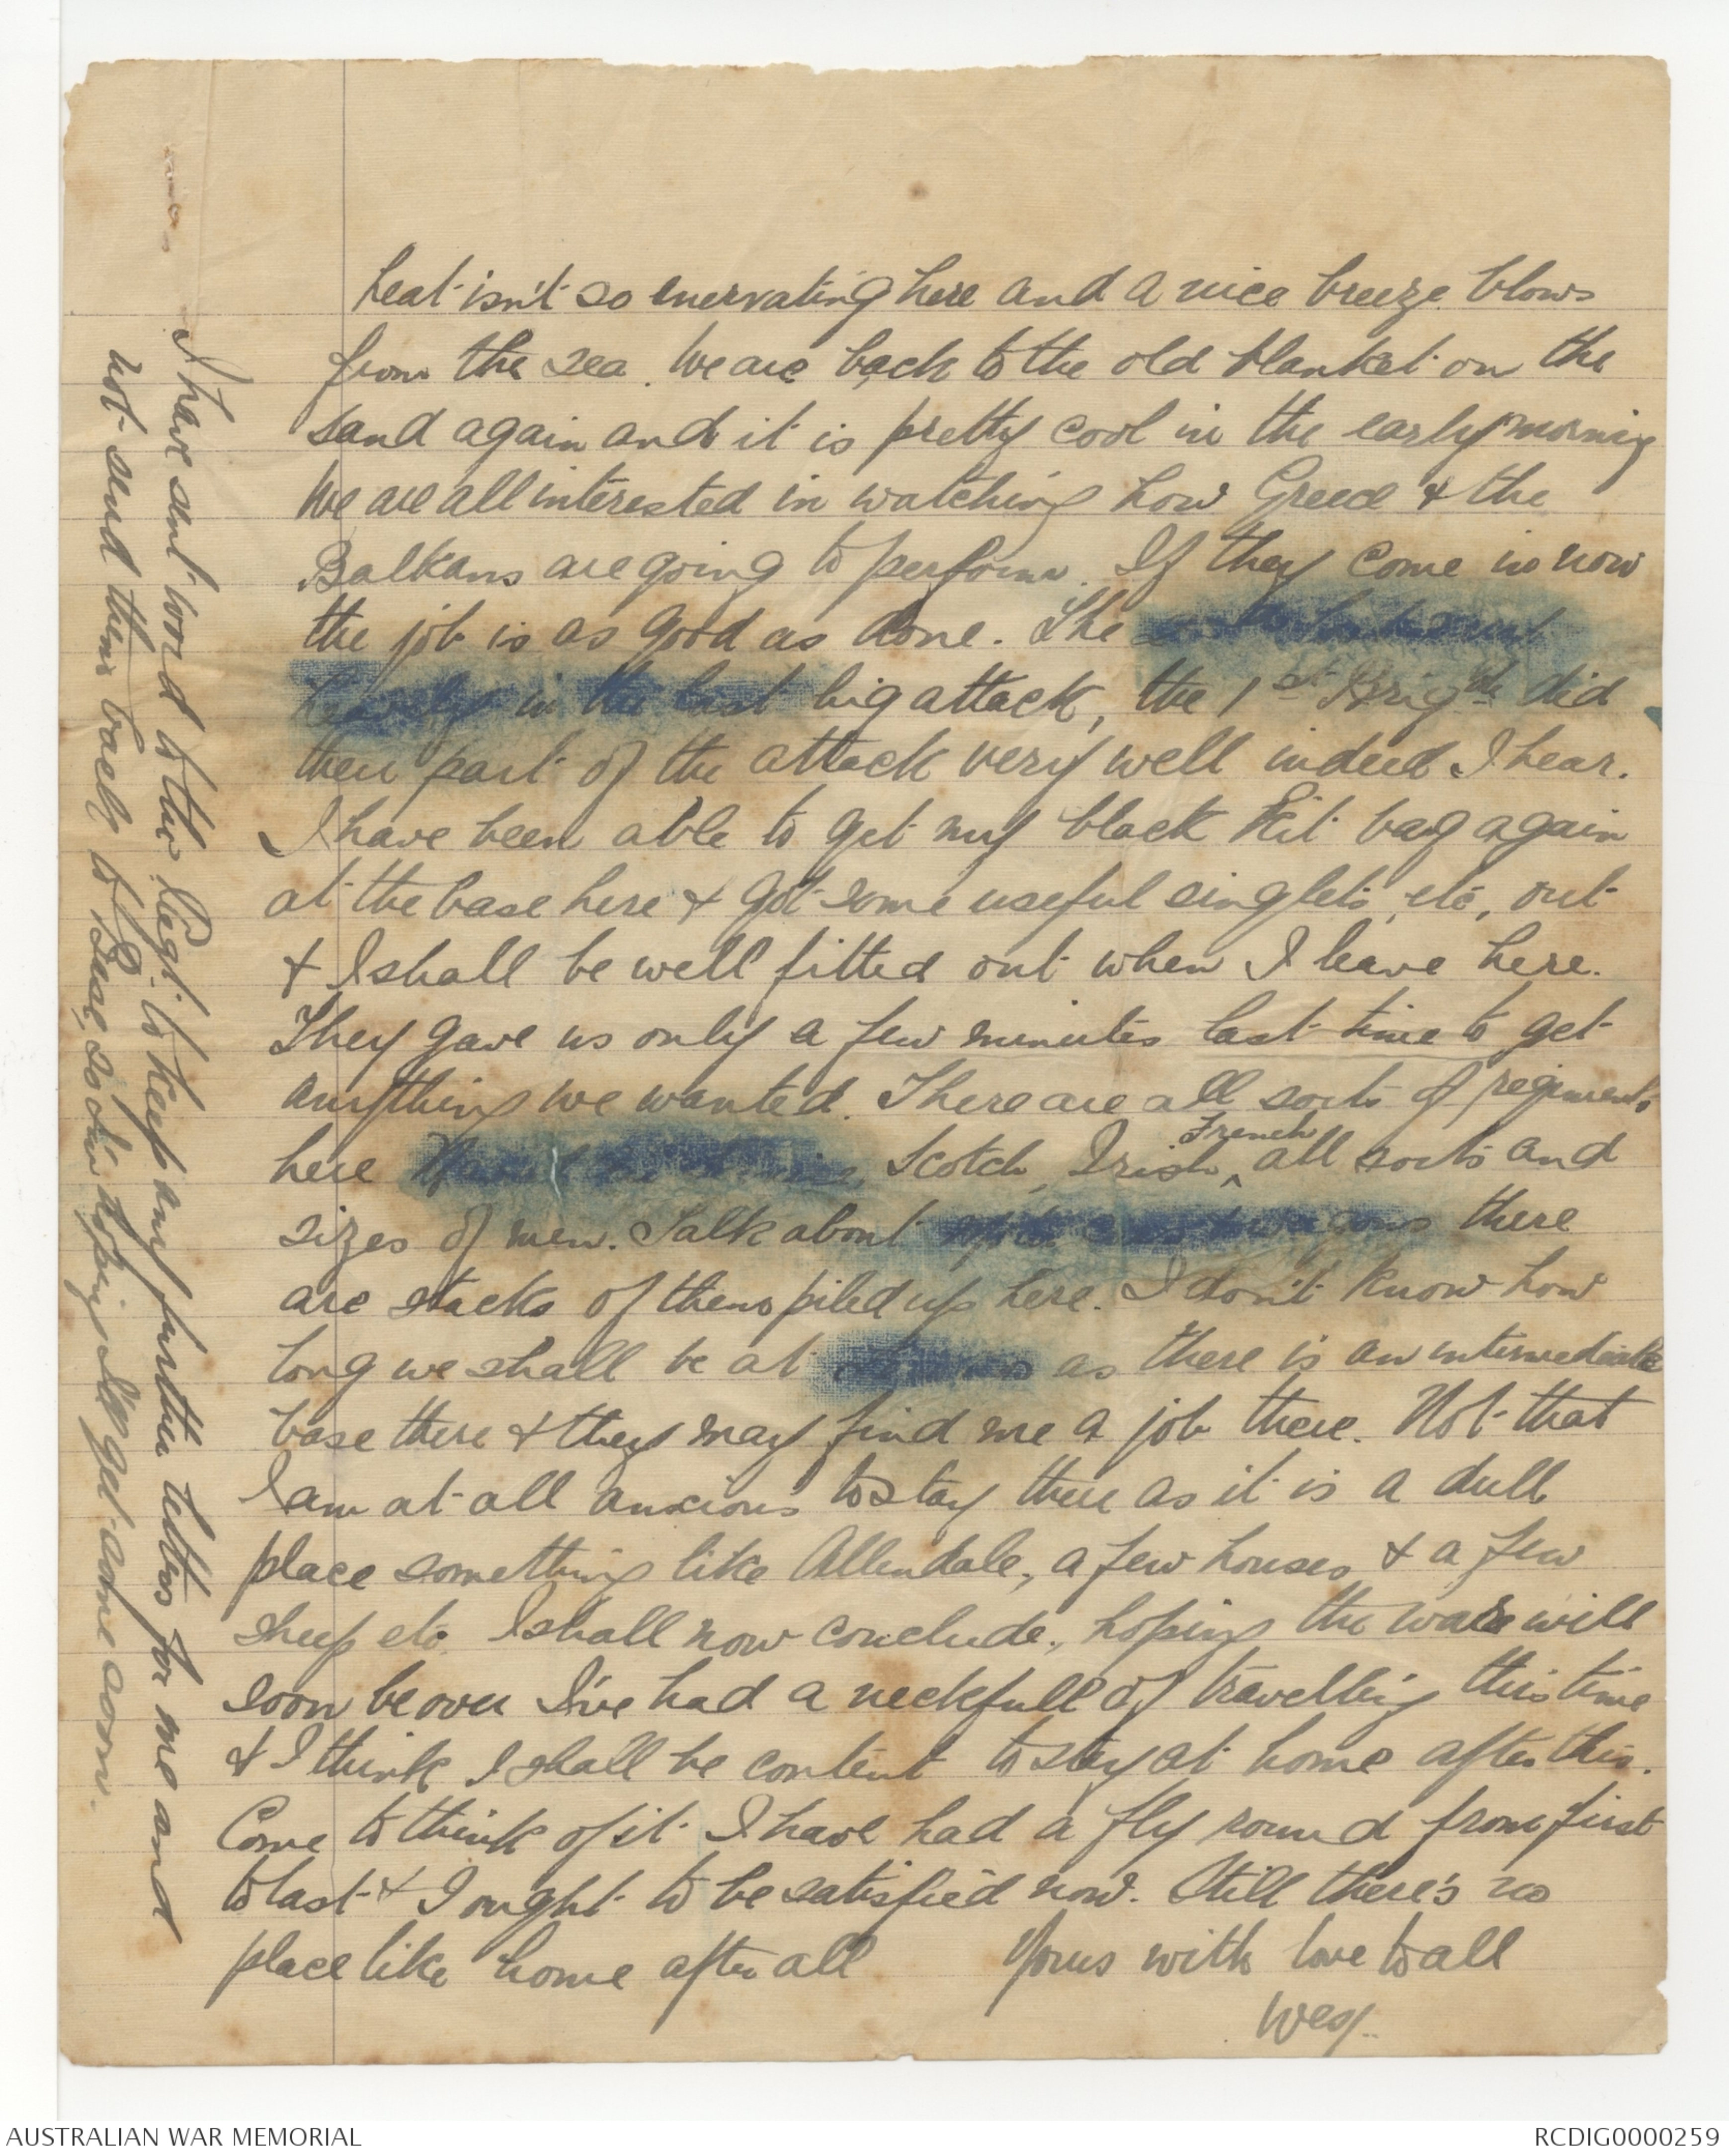 heat isn't so enervating here and a nice breeze blows
from the sea. We are back to the old blanket on the
sand again and it is pretty cool in the early morning
We are all interested in watching how Greece & the
Balkans are going to perform. If they come in now
the job is as good as done. The
in the last big attack, the 1st Brigde did
their part of the attack very well indeed I hear.
I have been able to get my black kit bag again
at the base here & got some useful singlets, etc, out
& I shall be well fitted out when I leave here.
They gave us only a few minutes last time to get
anything we wanted. There are all sorts of regiments
here Scotch, Irish, French all sorts and
sizes of men. Talk about & wagons there
are stacks of them piled up here. I don't know how
long we shall be at as there is an intermediate
base there & they may find me a job there. Not that
I am at all anxious to stay there as it is a dull
place something like Allendale, a few houses & a few
sheep etc. I shall now conclude, hoping the war will
soon be over I've had a neckfull of travelling this time
& I think I shall be content to stay at home after this.
Come to think of it I have had a fly round from first
to last & I ought to be satisfied now. Still there's no
place like home after all Yours with love to all
Wes.
I have sent word to the Regt. to keep any further letters for me and
not send them back to Base, so I'm hoping I'll get some soon.
AUSTRALIAN WAR MEMORIAL
RCDIG0000259